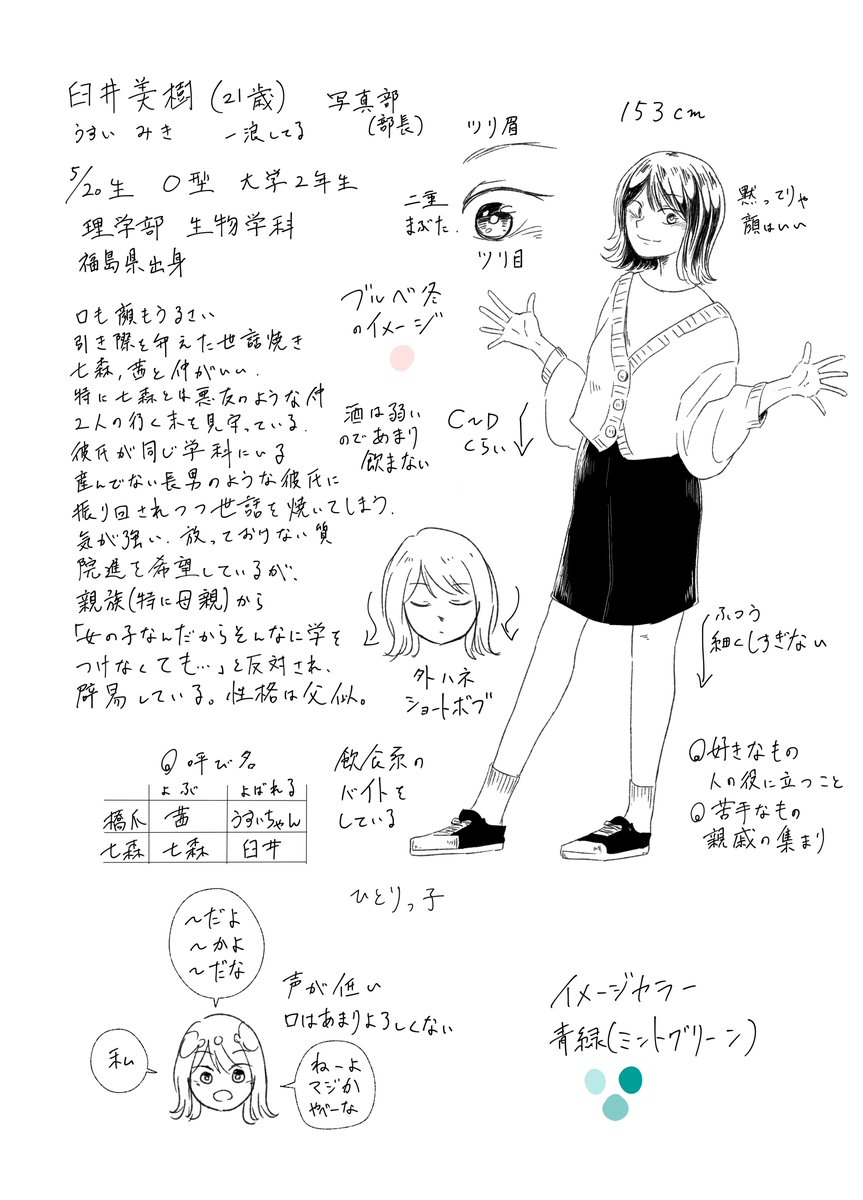 臼井美樹(21歳)
うすい みき
一浪してる
写真部
(部長)
5/20生 O型 大学2年生
理学部 生物学科
福島県出身
口も顔もうるさい
引き際を弁えた世話焼き
七森,茜と仲がいい.
特に七森とは悪友のような仲
2人の行く末を見守っている.
彼氏が同じ学科にいる
産んでない長男のような彼氏に
振り回されつつ世話を焼いてしまう.
気が強い.放っておけない質
院進を希望しているが、
親族(特に母親)から
「女の子なんだからそんなに学を
つけなくても…」と反対され、
辟易している。性格は父似。
ツリ眉
二重
まぶた.
ツリ目
153cm
黙ってりゃ
顔はいい
ブルベ冬
のイメージ
酒は弱い
のであまり
飲まない
C〜D
くらい
外ハネ
ショートボブ
ふつう
細くしすぎない
呼び名
よぶ よばれる
橋爪 茜 うすいちゃん
七森 七森 臼井
飲食系の
バイトを
している
好きなもの
人の役に立つこと
苦手なもの
親戚の集まり
ひとりっ子
〜だよ
〜かよ
〜だな
声が低い
口はあまりよろしくない
私
ねーよ
マジか
やべーな
イメージカラー
青緑(ミントグリーン)